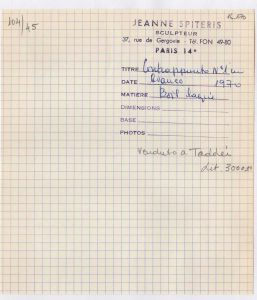 104/45
JEANNE SPITERIS
SCULPTEUR
37, rue de Gergovie - Tél. FON 49-80
PARIS 14e
TITRE Contrappunto N°1 in
bianco
DATE 1970
MATIERE Bois laqué
DIMENSIONS
BASE
PHOTOS
Venduto a Taddei
Lit. 300000